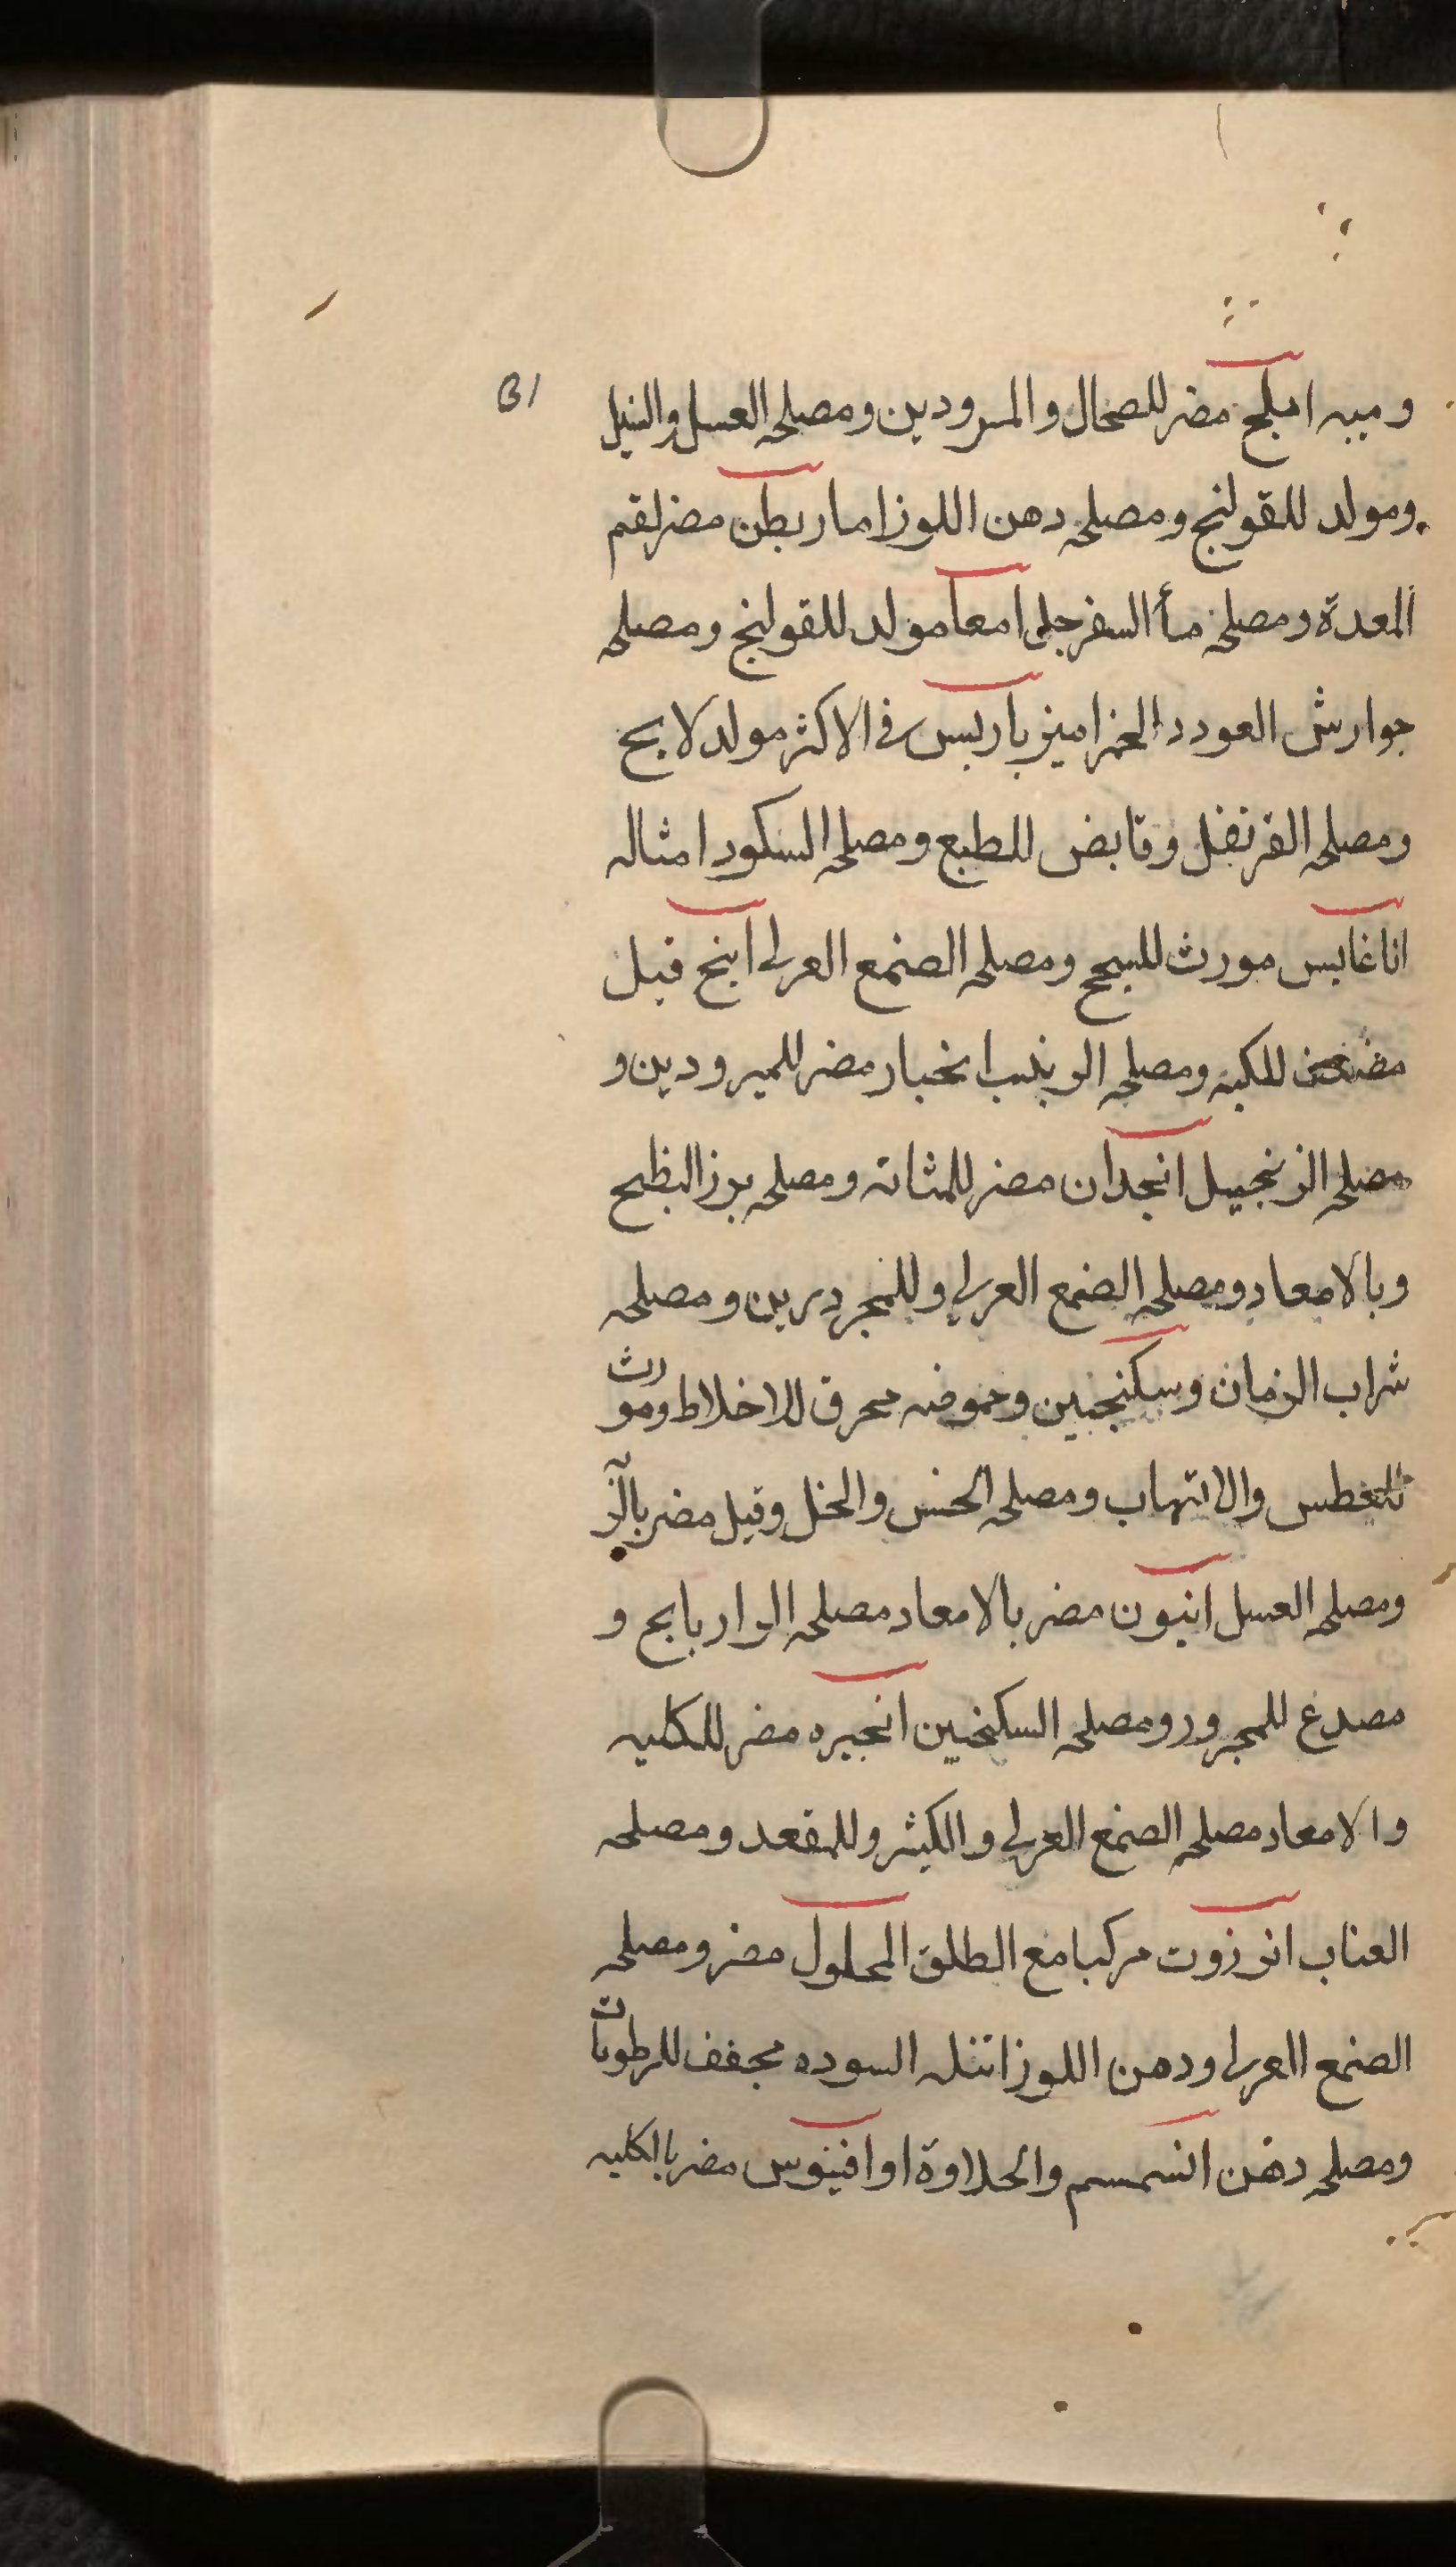 131
وميبه املج مضر للصحال والمبرودين ومصلحه العسل والنيل
ومولد للقولنج ومصلحه دهن اللوز اماربطن مضر لقم
المعدة ومصلحه مأ السفرجلى امعا مولد للقولنج ومصلحه
جوارش العود د امير باريس فى الاكثر مولد لا يح
ومصلحه القرنفل وقابض للطبع ومصلحه السكود امثاله
اناغايس مورث للسحج ومصلحه الصنمع العربى ابنج قيل
للكبة ومصلحه انخبار مضر للمبرودين و
مصلحه الزنجبيل انجدان مضر للمثانه ومصلحه بزر البطيح
وبالامعاد ومصلحه الصنمع العربى ومصلحه
شراب الرمان وسكنجبين وحموضه محرق للاخلاط ومورث
للعطس والالتهاب ومصلحه الخس والخل وقيل مضر
ومصلحه العسل انيون مضر بالامعاد مصلحه و
مصدع للمحرور ومصلحه السكنجبين انجبره مضر للكليه
والامعاد مصلحه الصنمع العربى والكيثر وللمقعد ومصلحه
العناب انزروت مركبا مع الطلق المحلول مضر ومصلحه
الصنمع العربى ودهن اللوز انثله السوده مجفف للرطوبات
ومصلحه دهن السمسم والحلاوة اوافينوس مضر بالكليه